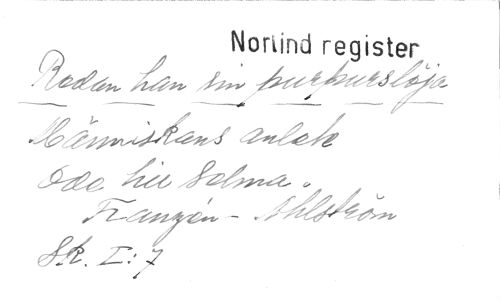 Norlind register
Redan han sin purpurslöja
Människans anlete
Ode till Selma.
Franzén - Ahlström
Sk. I: 7